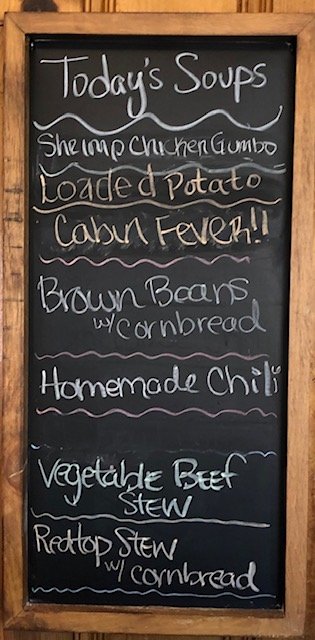 Today's Soups
Shrimp Chicken Gumbo
Loaded Potato
Cabin Fever!!
Brown Beans
w/ cornbread
Homemade Chili
Vegetable Beef
Stew
Redtop Stew
w/ cornbread